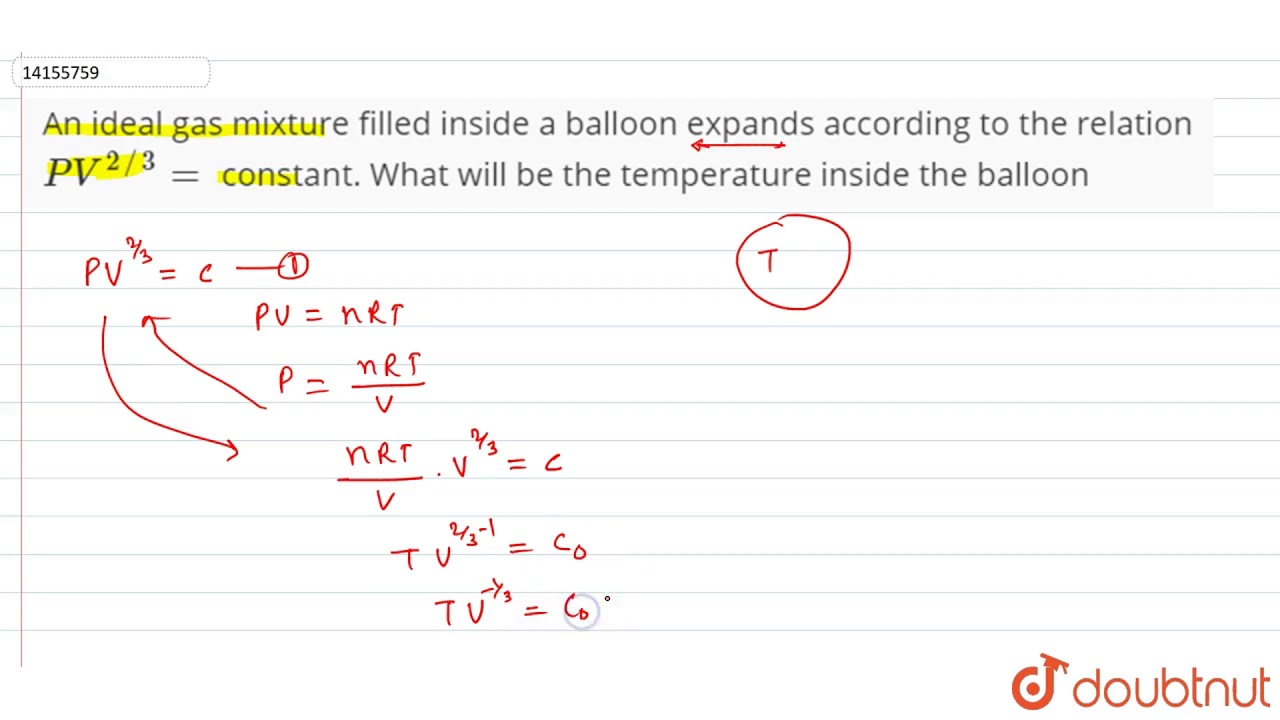 14155759
An ideal gas mixture filled inside a balloon expands according to the relation
PV^{2/3} = constant. What will be the temperature inside the balloon
PV^{2/3} = c — ①
T
PV = nRT
P = nRT/V
nRT/V · V^{2/3} = c
T V^{2/3-1} = C₀
T V^{-1/3} = C₀
doubtnut